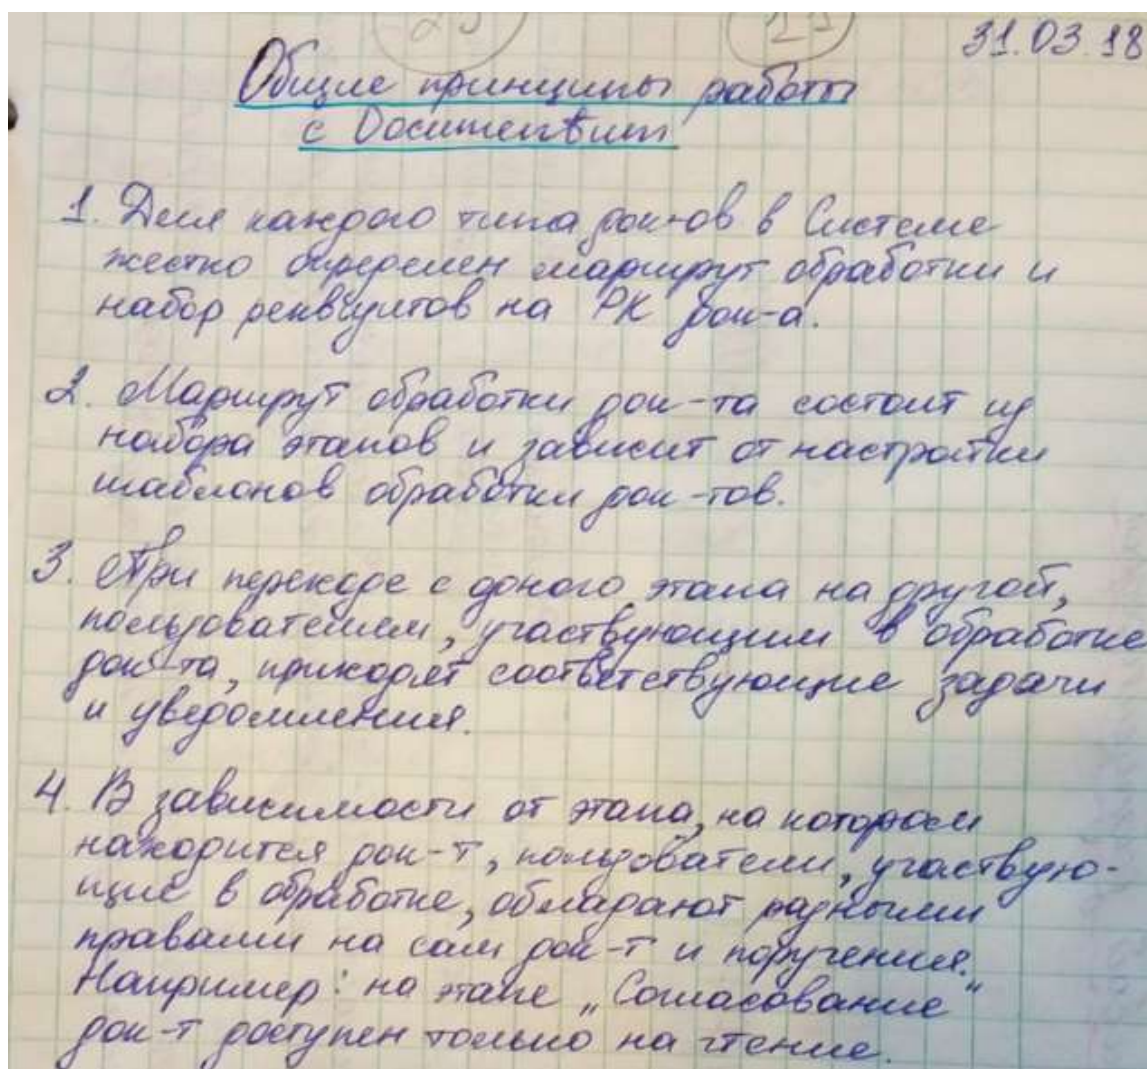 31.03.18
Общие принципы работы
с Documentum
1. Для каждого типа док-ов в Системе
жестко определен маршрут обработки и
набор реквизитов на РК док-а.
2. Маршрут обработки док-та состоит из
набора этапов и зависит от настройки
шаблонов обработки док-тов.
3. При переходе с доного этапа на другой,
пользователем, участвующим в обработке
док-та, приходят соответствующие задачи
и уведомления.
4. В зависимости от этапа, на котором
находится док-т, пользователи, участвую-
щие в обработке, обладают разными
правами на сам док-т и поручения.
Например: на этапе „Согласование"
док-т доступен только на чтение.